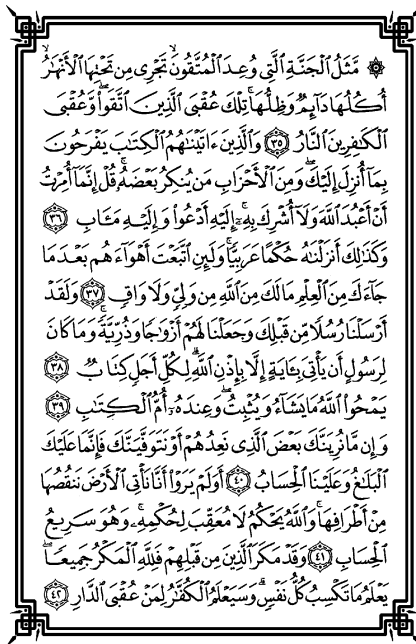 ۞ مَّثَلُ ٱلْجَنَّةِ ٱلَّتِي وُعِدَ ٱلْمُتَّقُونَۖ تَجْرِي مِن تَحْتِهَا ٱلْأَنْهَٰرُۖ
أُكُلُهَا دَآئِمٌ وَظِلُّهَاۚ تِلْكَ عُقْبَى ٱلَّذِينَ ٱتَّقَوا۟ۖ وَّعُقْبَى
ٱلْكَٰفِرِينَ ٱلنَّارُ ٣٥ وَٱلَّذِينَ ءَاتَيْنَٰهُمُ ٱلْكِتَٰبَ يَفْرَحُونَ
بِمَآ أُنزِلَ إِلَيْكَۖ وَمِنَ ٱلْأَحْزَابِ مَن يُنكِرُ بَعْضَهُۥۚ قُلْ إِنَّمَآ أُمِرْتُ
أَنْ أَعْبُدَ ٱللَّهَ وَلَآ أُشْرِكَ بِهِۦٓۚ إِلَيْهِ أَدْعُوا۟ وَإِلَيْهِ مَـَٔابِ ٣٦
وَكَذَٰلِكَ أَنزَلْنَٰهُ حُكْمًا عَرَبِيًّاۚ وَلَئِنِ ٱتَّبَعْتَ أَهْوَآءَهُم بَعْدَ مَا
جَآءَكَ مِنَ ٱلْعِلْمِ مَا لَكَ مِنَ ٱللَّهِ مِن وَلِيٍّ وَلَا وَاقٍ ٣٧ وَلَقَدْ
أَرْسَلْنَا رُسُلًا مِّن قَبْلِكَ وَجَعَلْنَا لَهُمْ أَزْوَٰجًا وَذُرِّيَّةًۚ وَمَا كَانَ
لِرَسُولٍ أَن يَأْتِيَ بِـَٔايَةٍ إِلَّا بِإِذْنِ ٱللَّهِۗ لِكُلِّ أَجَلٍ كِتَابٌ ٣٨
يَمْحُوا۟ ٱللَّهُ مَا يَشَآءُ وَيُثْبِتُۖ وَعِندَهُۥٓ أُمُّ ٱلْكِتَٰبِ ٣٩
وَإِن مَّا نُرِيَنَّكَ بَعْضَ ٱلَّذِي نَعِدُهُمْ أَوْ نَتَوَفَّيَنَّكَ فَإِنَّمَا عَلَيْكَ
ٱلْبَلَٰغُ وَعَلَيْنَا ٱلْحِسَابُ ٤٠ أَوَلَمْ يَرَوْا۟ أَنَّا نَأْتِي ٱلْأَرْضَ نَنقُصُهَا
مِنْ أَطْرَافِهَاۚ وَٱللَّهُ يَحْكُمُ لَا مُعَقِّبَ لِحُكْمِهِۦۚ وَهُوَ سَرِيعُ
ٱلْحِسَابِ ٤١ وَقَدْ مَكَرَ ٱلَّذِينَ مِن قَبْلِهِمْ فَلِلَّهِ ٱلْمَكْرُ جَمِيعًاۖ
يَعْلَمُ مَا تَكْسِبُ كُلُّ نَفْسٍۗ وَسَيَعْلَمُ ٱلْكُفَّٰرُ لِمَنْ عُقْبَى ٱلدَّارِ ٤٢